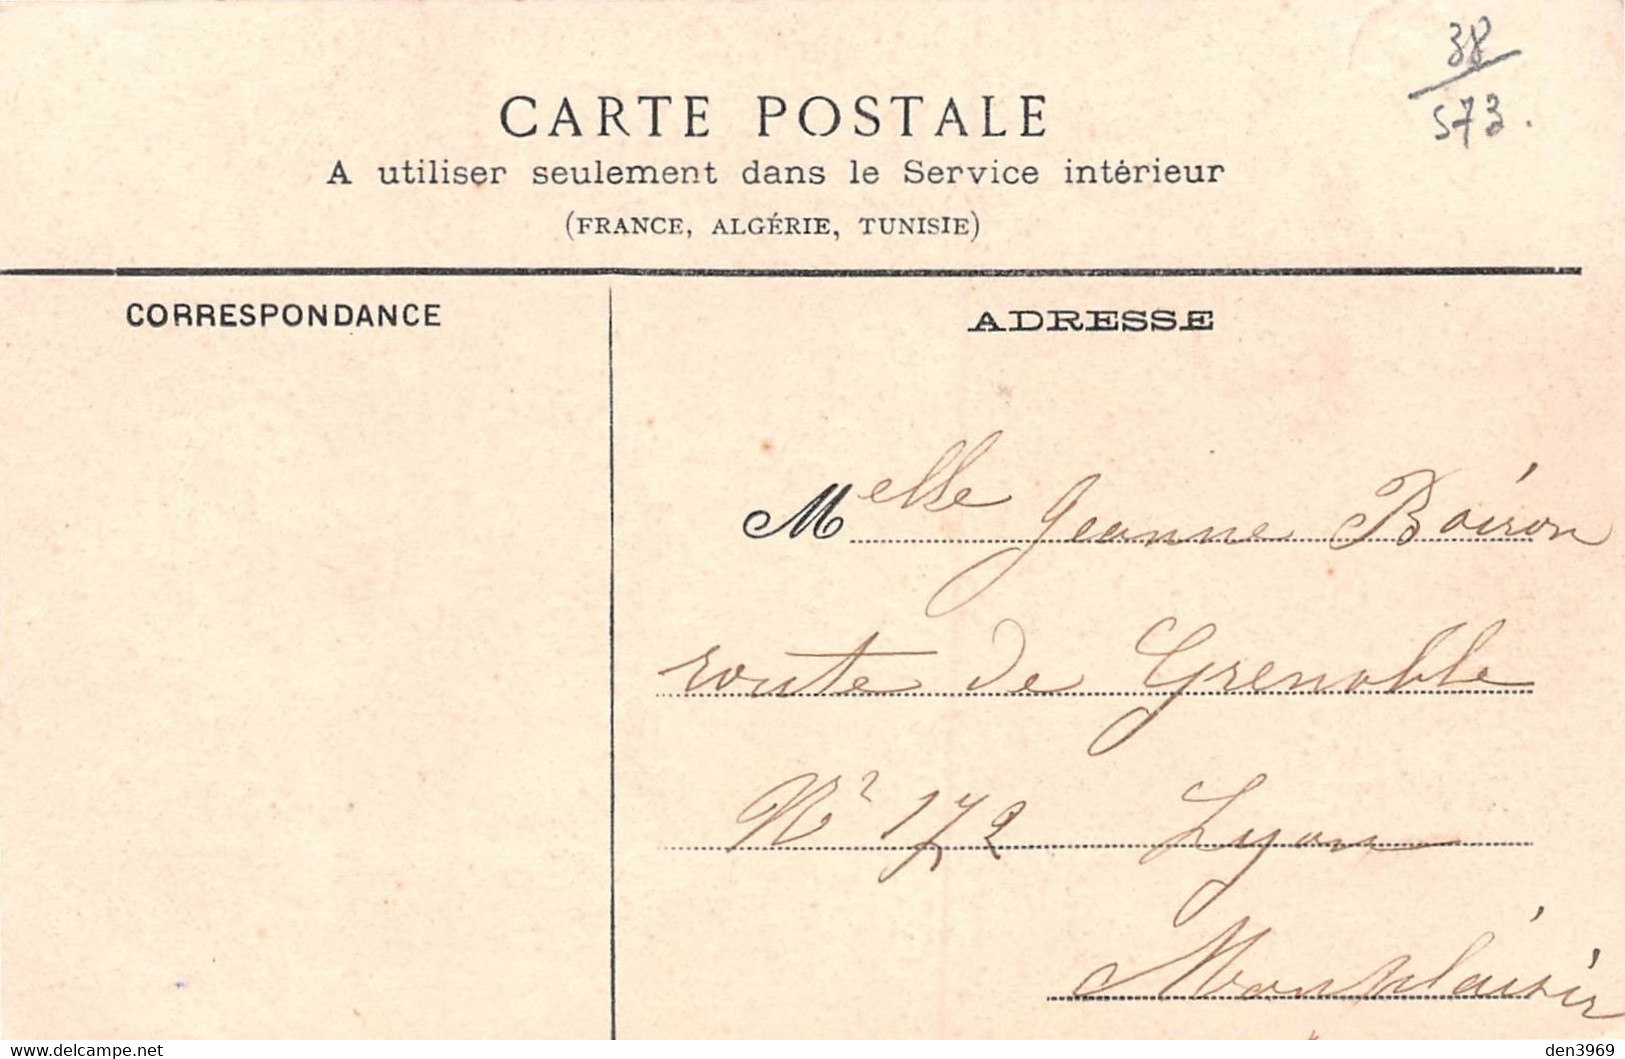 38
573.
CARTE POSTALE
A utiliser seulement dans le Service intérieur
(FRANCE, ALGÉRIE, TUNISIE)
CORRESPONDANCE
ADRESSE
Melle Jeanne Boiron
route de Grenoble
N° 172 Lyon
Monplaisir
den3969